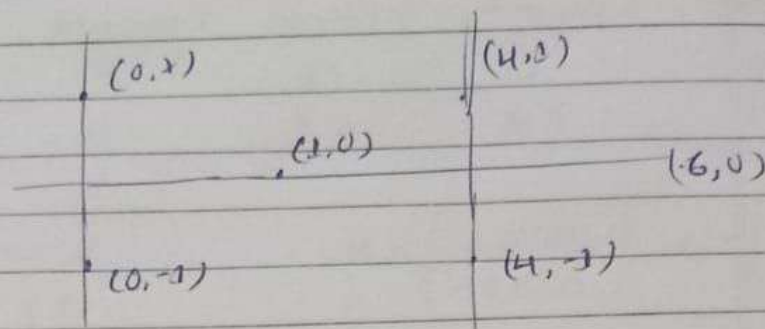 (0,1)
(4,1)
(1,0)
(6,0)
(0,-1)
(4,-1)